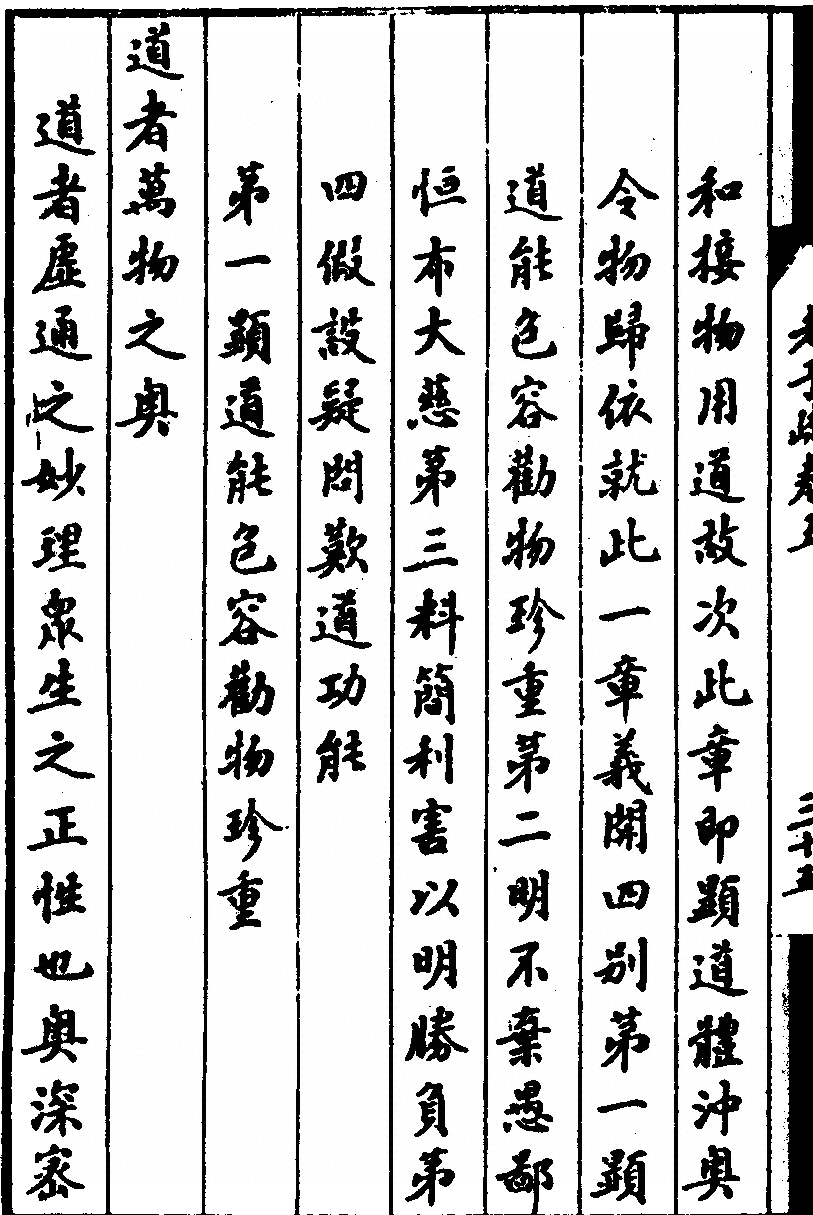 老子疏卷五 三十五
和接物用道故次此章即顯道體沖奧
令物歸依就此一章義開四別第一顯
道能包容勸物珍重第二明不棄愚鄙
恒布大慈第三料簡利害以明勝負第
四假設疑問歎道功能
第一顯道能包容勸物珍重
道者萬物之奧
道者虛通之妙理衆生之正性也奧深密